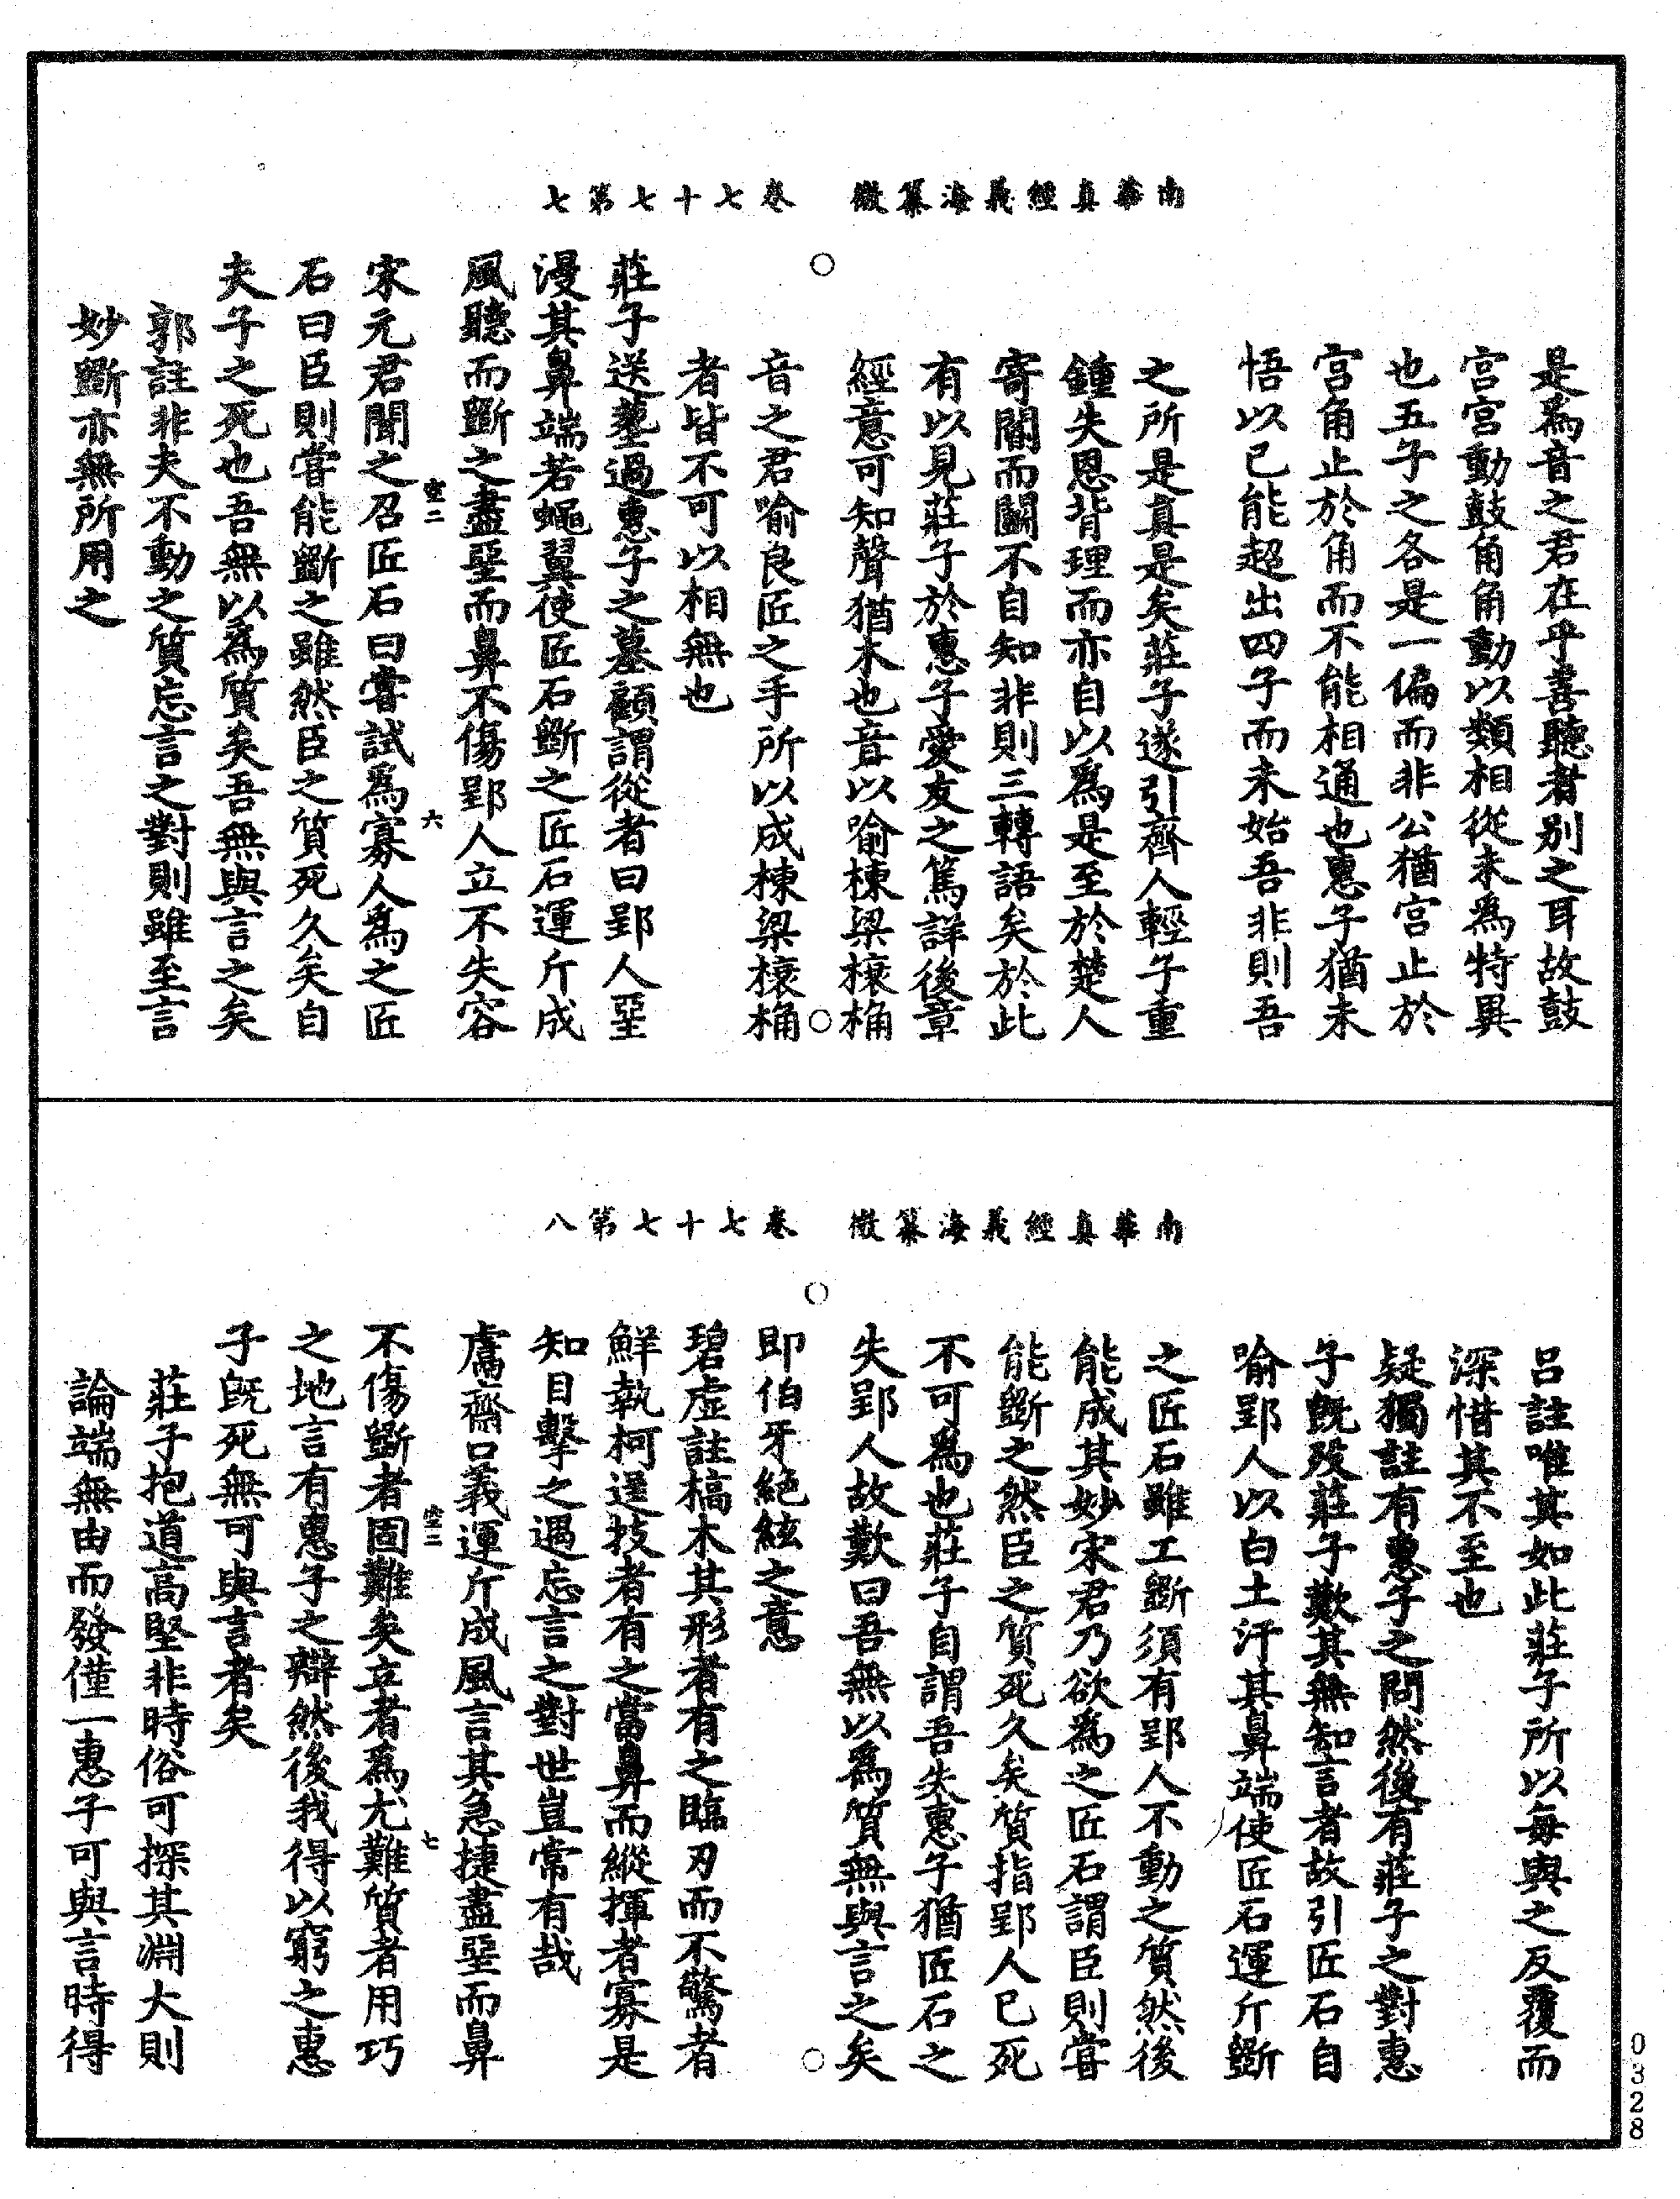 南華真經義海纂微　卷七十七第七
是爲音之君在乎善聽者别之耳故鼓
宫宫動鼓角角動以類相從未爲特異
也五子之各是一偏而非公猶宫止於
宫角止於角而不能相通也惠子猶未
悟以已能超出四子而未始吾非則吾
之所是真是矣莊子遂引齊人輕子重
鍾失恩背理而亦自以爲是至於楚人
寄閽而鬭不自知非則三轉語矣於此
有以見莊子於惠子愛友之篤詳後章
經意可知聲猶木也音以喻棟梁榱桷
音之君喻良匠之手所以成棟梁榱桷
者皆不可以相無也
莊子送葬過惠子之墓顧謂從者曰郢人堊
漫其鼻端若蠅翼使匠石斲之匠石運斤成
風聽而斲之盡堊而鼻不傷郢人立不失容
空二
六
宋元君聞之召匠石曰嘗試爲寡人爲之匠
石曰臣則嘗能斲之雖然臣之質死久矣自
夫子之死也吾無以爲質矣吾無與言之矣
郭註非夫不動之質忘言之對則雖至言
妙斲亦無所用之
南華真經義海纂微　卷七十七第八
吕註唯其如此莊子所以每與之反覆而
深惜其不至也
疑獨註有惠子之問然後有莊子之對惠
子既殁莊子歎其無知言者故引匠石自
喻郢人以白土汙其鼻端使匠石運斤斲
之匠石雖工斲須有郢人不動之質然後
能成其妙宋君乃欲爲之匠石謂臣則嘗
能斲之然臣之質死久矣質指郢人已死
不可爲也莊子自謂吾失惠子猶匠石之
失郢人故歎曰吾無以爲質無與言之矣
即伯牙絶絃之意
碧虚註槁木其形者有之臨刃而不驚者
鮮執柯逞技者有之當鼻而縱揮者寡是
知目擊之遇忘言之對世豈常有哉
鬳齋口義運斤成風言其急捷盡堊而鼻
空二
七
不傷斲者固難矣立者爲尤難質者用巧
之地言有惠子之辯然後我得以窮之惠
子既死無可與言者矣
莊子抱道高堅非時俗可探其淵大則
論端無由而發僅一惠子可與言時得
0328